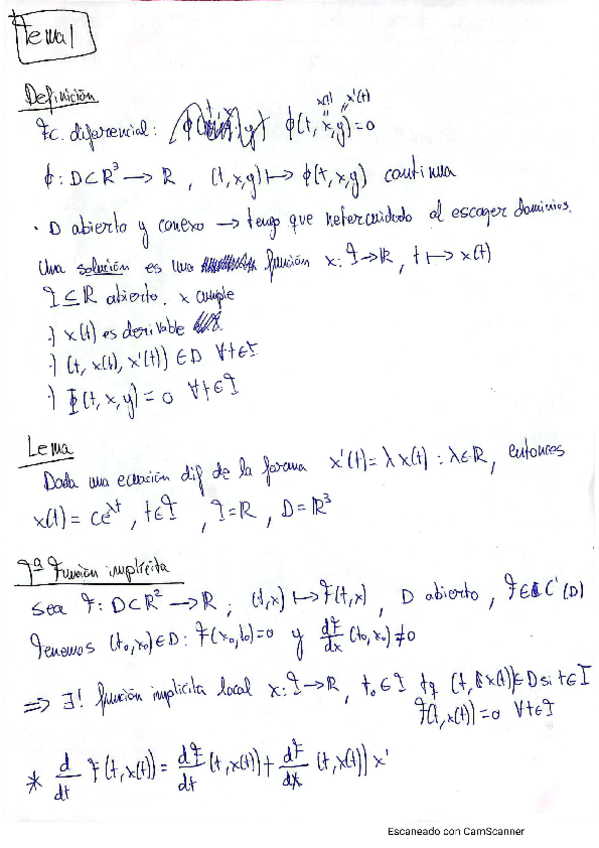 Tema 1
Definición
x(t) x'(t)
Ec. diferencial: ϕ(t, x, y) = 0
ϕ: D⊂R³ → R, (t, x, y) ↦ ϕ(t, x, y) continua
· D abierto y conexo → tengo que tener cuidado al escoger dominios.
Una solución es una función x: I→R, t ↦ x(t)
I ⊆ R abierto. x cumple
·) x(t) es derivable
·) (t, x(t), x'(t)) ∈ D ∀t∈I
·) Φ(t, x, y) = 0 ∀t∈I
Lema
Dada una ecuación dif de la forma x'(t) = λ x(t) : λ∈R, entonces
x(t) = ce^λt, t∈I, I=R, D=R³
Tª Función implícita
Sea F: D⊂R² → R; (t,x) ↦ F(t,x), D abierto, F∈C¹(D)
Tenemos (t₀,x₀)∈D: F(x₀,t₀)=0 y dF/dx (t₀,x₀) ≠ 0
⇒ ∃! función implícita local x: I→R, t₀∈I tq (t, x(t))∈D si t∈I
F(t, x(t)) = 0 ∀t∈I
* d/dt F(t, x(t)) = dF/dt (t, x(t)) + dF/dx (t, x(t)) x'
Escaneado con CamScanner